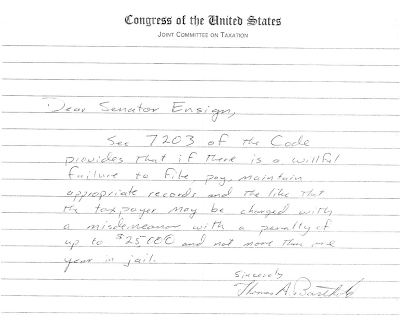 Congress of the United States
JOINT COMMITTEE ON TAXATION
Dear Senator Ensign,
Sec 7203 of the Code
provides that if there is a willful
failure to file, pay, maintain
appropriate records and the like that
the taxpayer may be charged with
a misdemeanor with a penalty of
up to $25000 and not more than one
year in jail.
Sincerely
Thomas A. Barthold